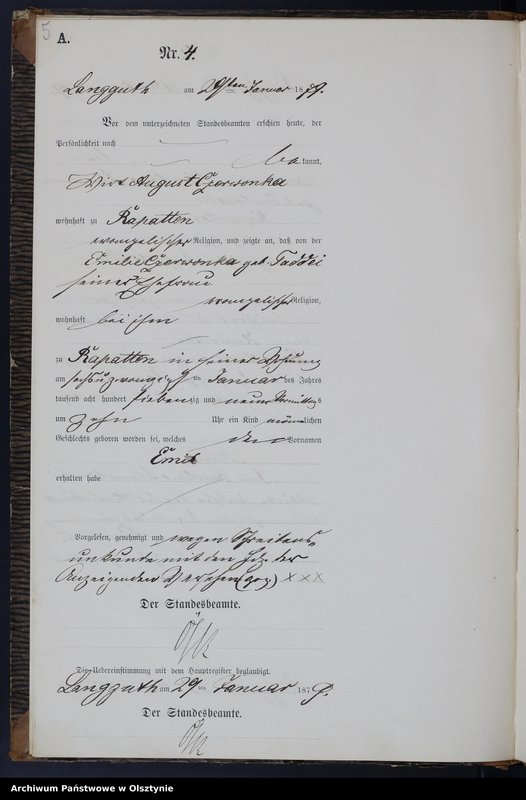 5
A.
Nr. 4.
Langguth am 29ten Januar 1879.
Vor dem unterzeichneten Standesbeamten erschien heute, der
Persönlichkeit nach
bekannt,
Wirt August Czerwonka
wohnhaft zu Rapatten
evangelischer Religion, und zeigte an, daß von der
Emilie Czerwonka geb. Taddei
seiner Ehefrau
evangelischer Religion,
wohnhaft bei ihm
zu Rapatten in seiner Wohnung
am sechsundzwanzigsten Januar des Jahres
tausend acht hundert siebenzig und neun Vormittags
um Zehn Uhr ein Kind männlichen
Geschlechts geboren worden sei, welches den Vornamen
Emil
erhalten habe
Vorgelesen, genehmigt und wegen Schreibens
unkunde mit den
Anzeigenden Versehen (gez) XXX
Der Standesbeamte.
Die Uebereinstimmung mit dem Hauptregister beglaubigt.
Langguth am 29ten Januar 1879.
Der Standesbeamte.
Archiwum Państwowe w Olsztynie